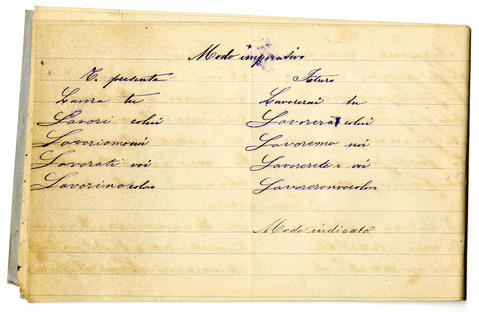 Modo imperativo
T. presente
Lavora tu
Lavori colui
Lavoriamonoi
Lavorati voi
Lavorinocoloro
Futuro
Lavorerai tu
Lavorerà colui
Lavoremo noi
Lavorerete voi
Lavoreronnocoloro
Modo indicato